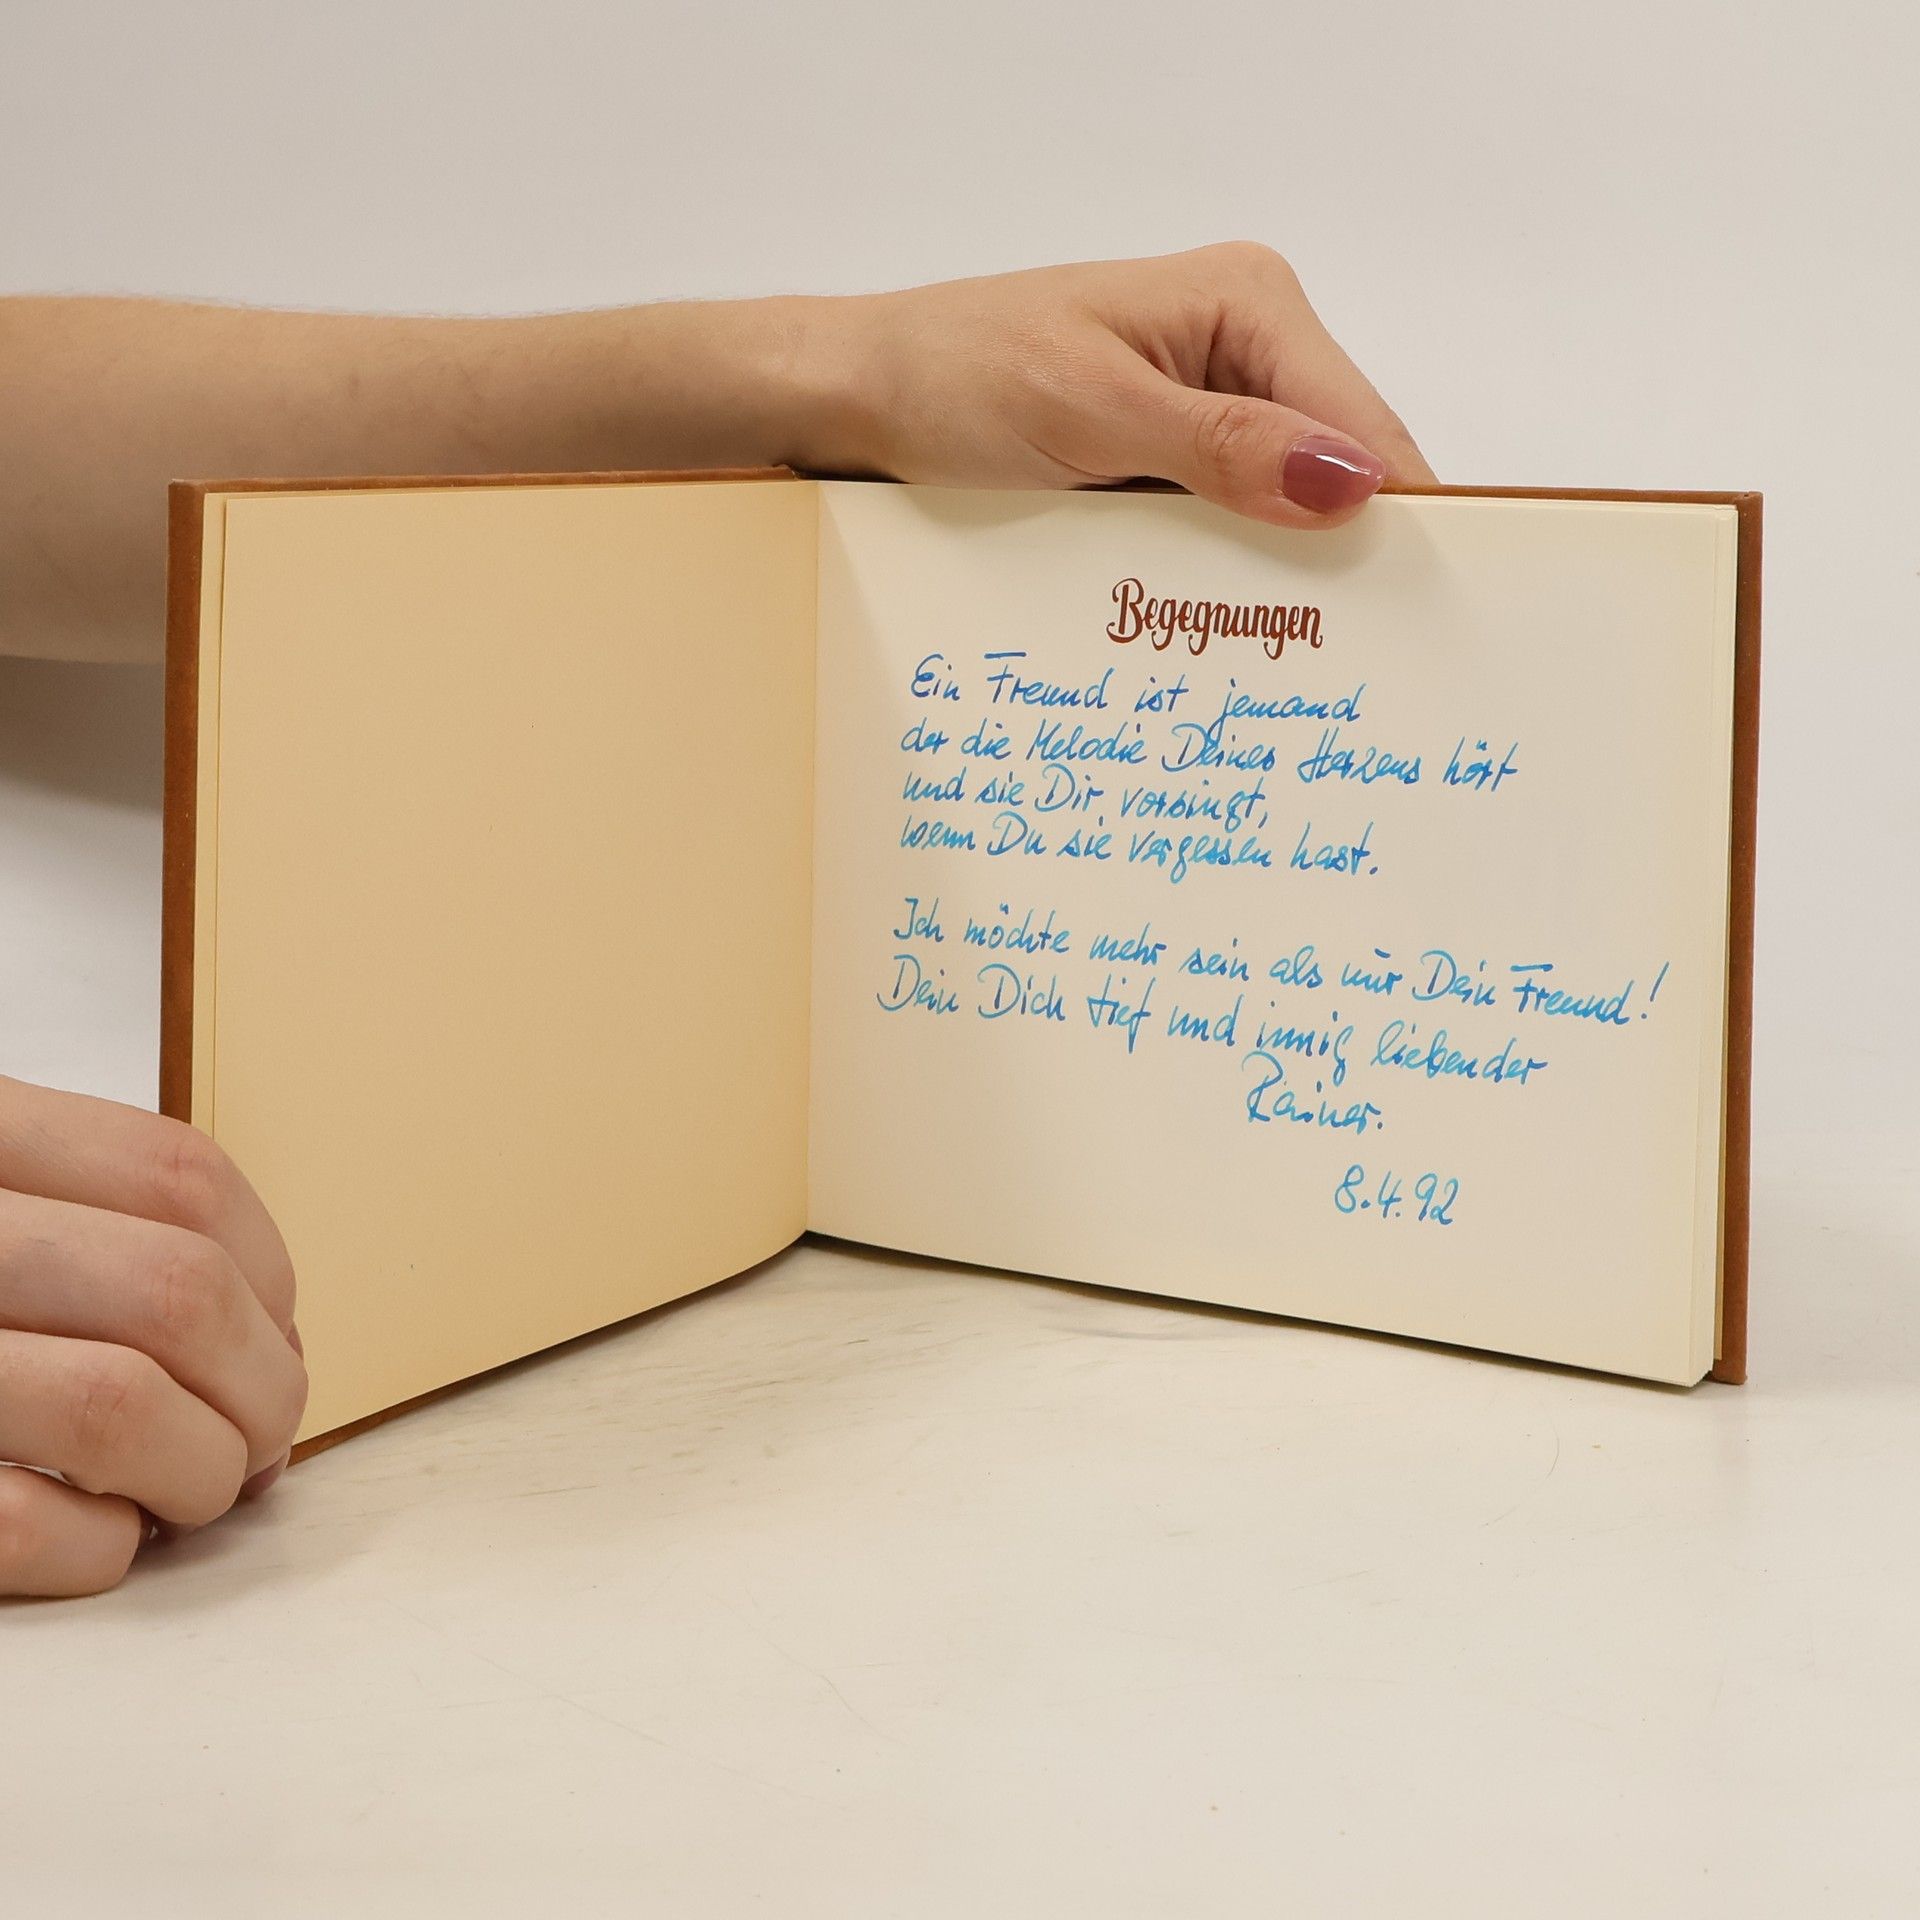 Begegnungen
Ein Freund ist jemand
der die Melodie Deines Herzens hört
und sie Dir vorsingt,
wenn Du sie vergessen hast.
Ich möchte mehr sein als nur Dein Freund!
Dein Dich tief und innig liebender
Rainer.
8.4.92